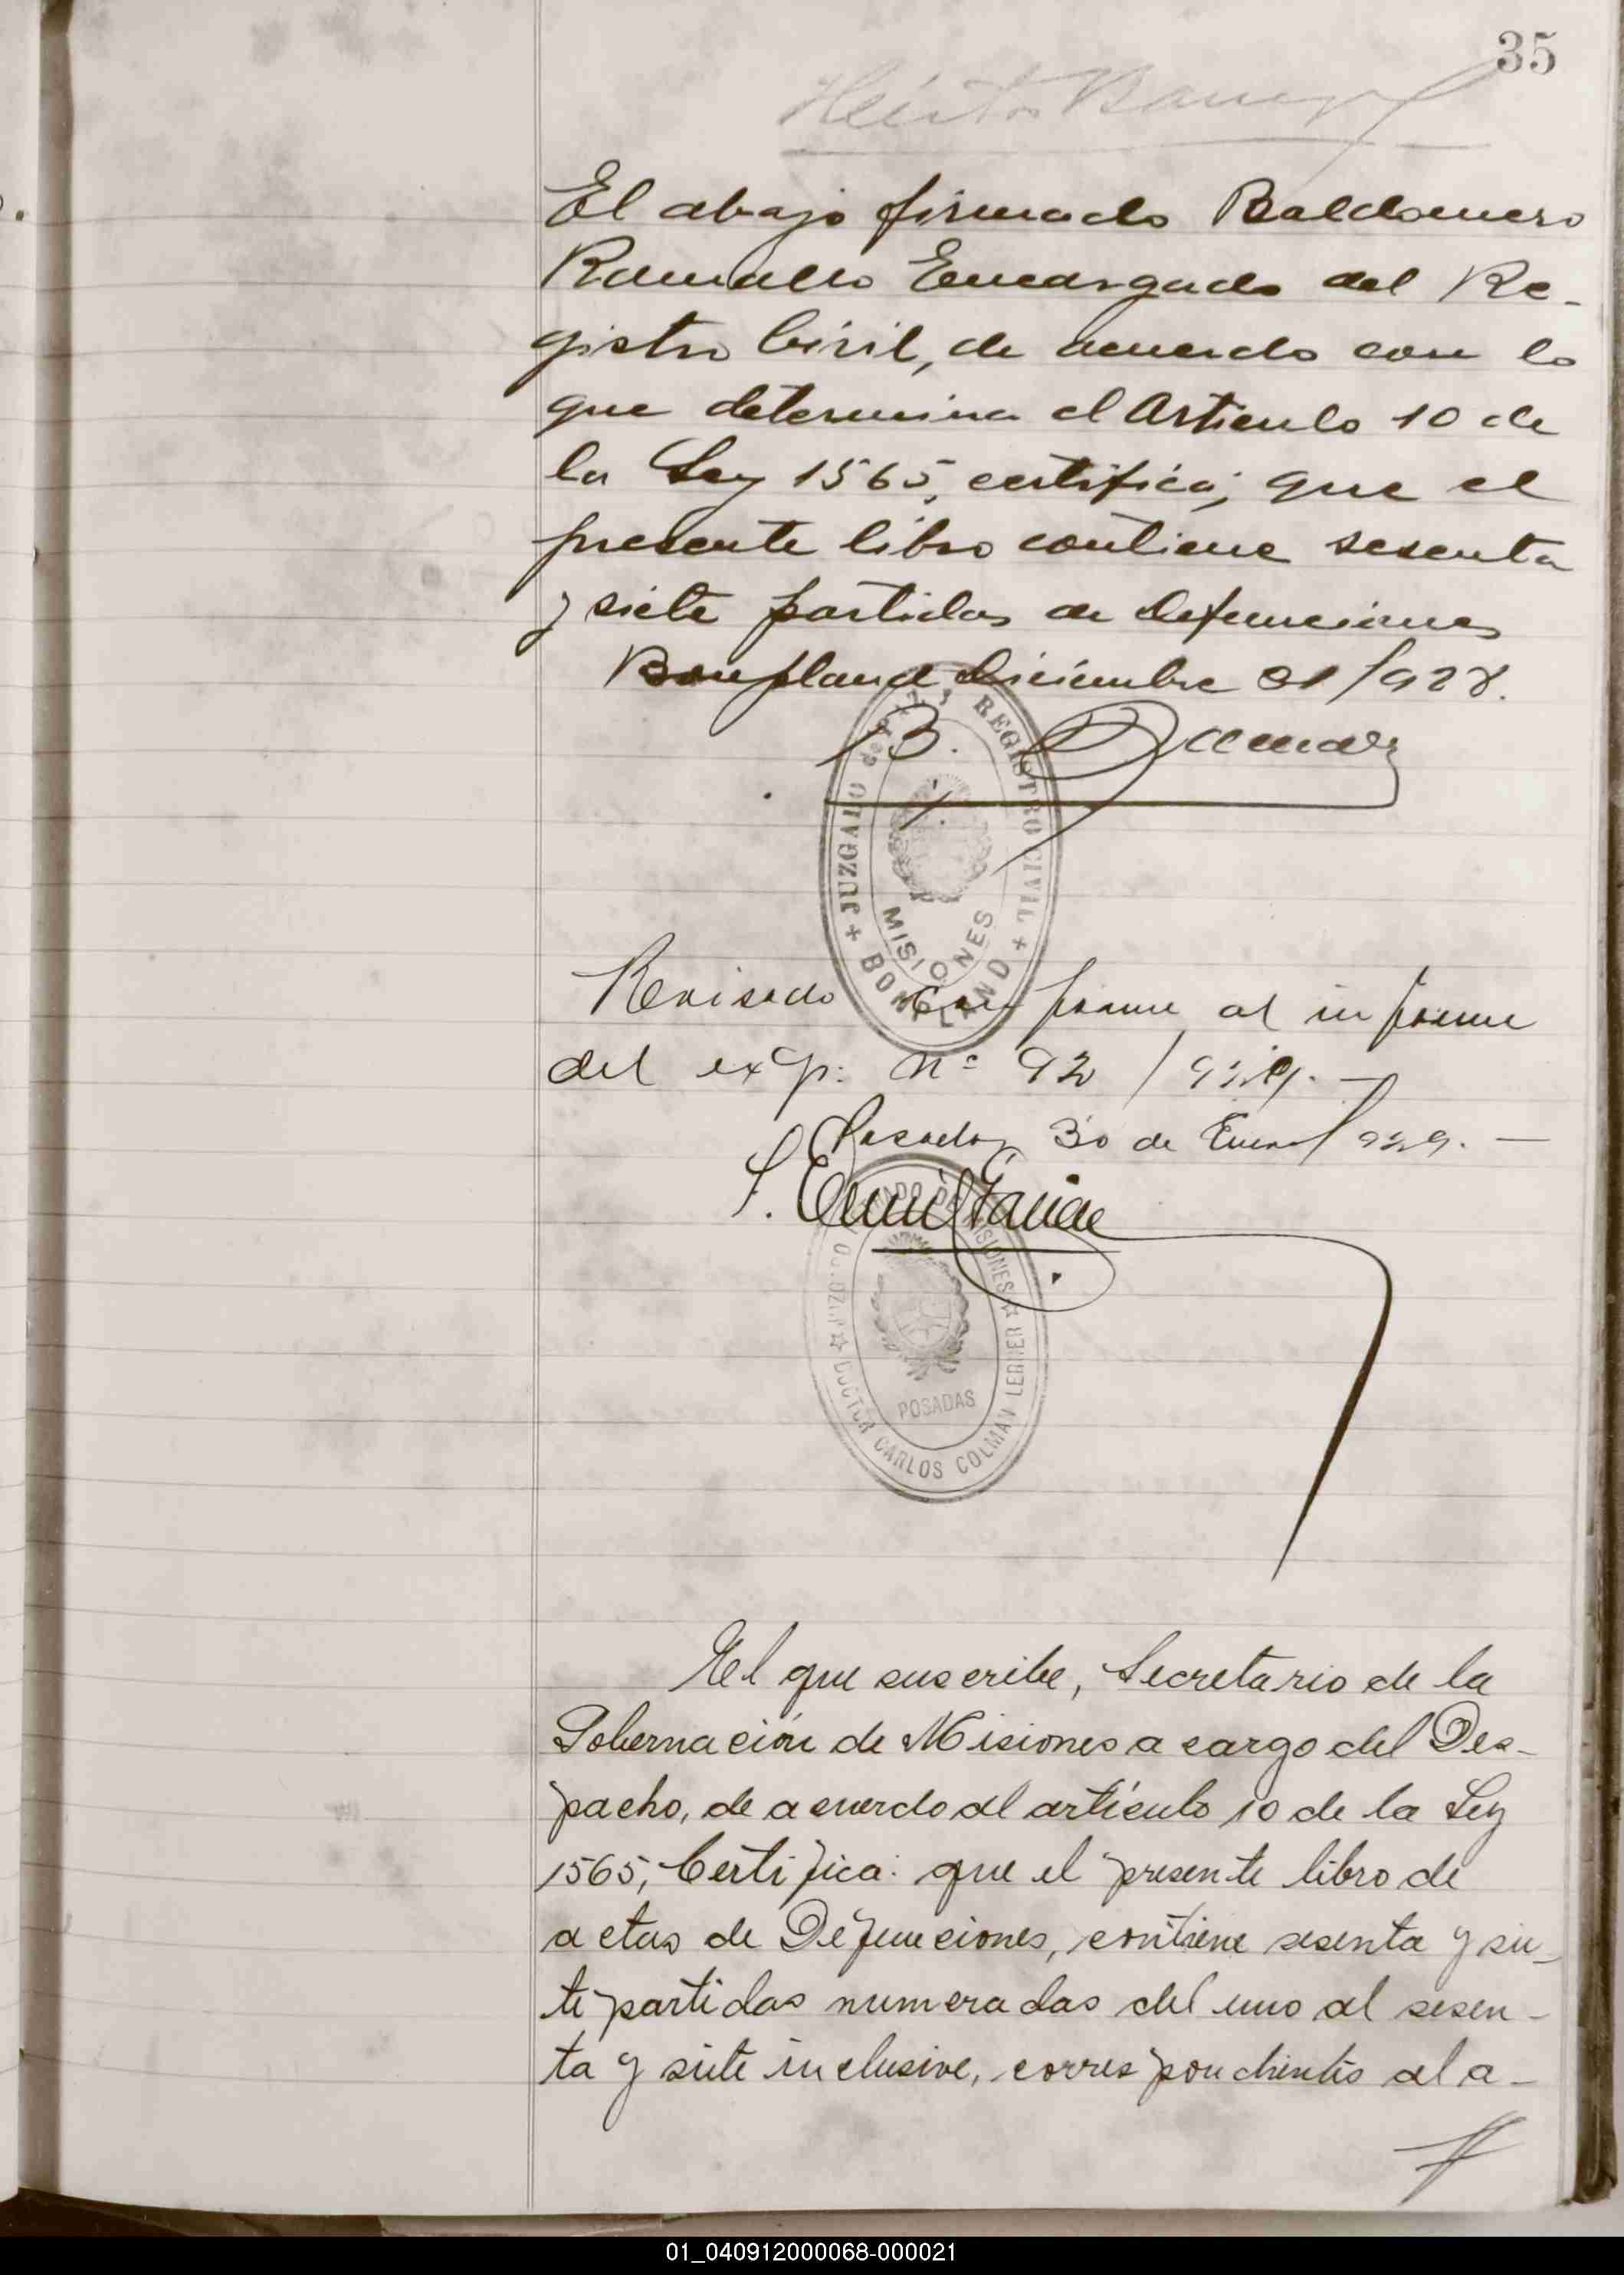 35
Héctor
El abajo firmado Baldomero
Ramallo Encargado del Re-
gistro Civil, de acuerdo con lo
que determina el Articulo 10 de
la Ley 1565, certifica; que el
presente libro contiene sesenta
y siete partidas de defunciones
Bonpland Diciembre 31/928.
B.
JUZGADO de PAZ y REGISTRO CIVIL
MISIONES
BONPLAND
Revisado Conforme al informe
del exp: Nº 92 / 929. —
Posadas 30 de Enero/929. —
JUZGADO LETRADO DE MISIONES
POSADAS
DOCTOR CARLOS COLMAN LERNER
El que suscribe, Secretario de la
Gobernación de Misiones a cargo del Des-
pacho, de acuerdo al artículo 10 de la Ley
1565, Certifica: que el presente libro de
actas de Defunciones, contiene sesenta y sie-
te partidas numeradas del uno al sesen-
ta y siete inclusive, correspondientes al a-
01_040912000068-000021